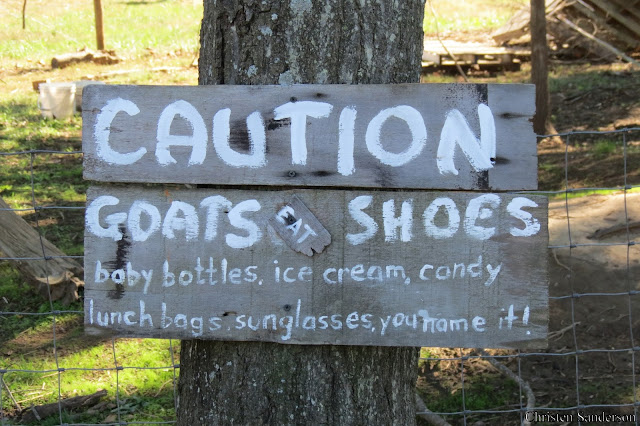 CAUTION
GOATS EAT SHOES
baby bottles, ice cream, candy
lunch bags, sunglasses, you name it!
© Christen Sanderson